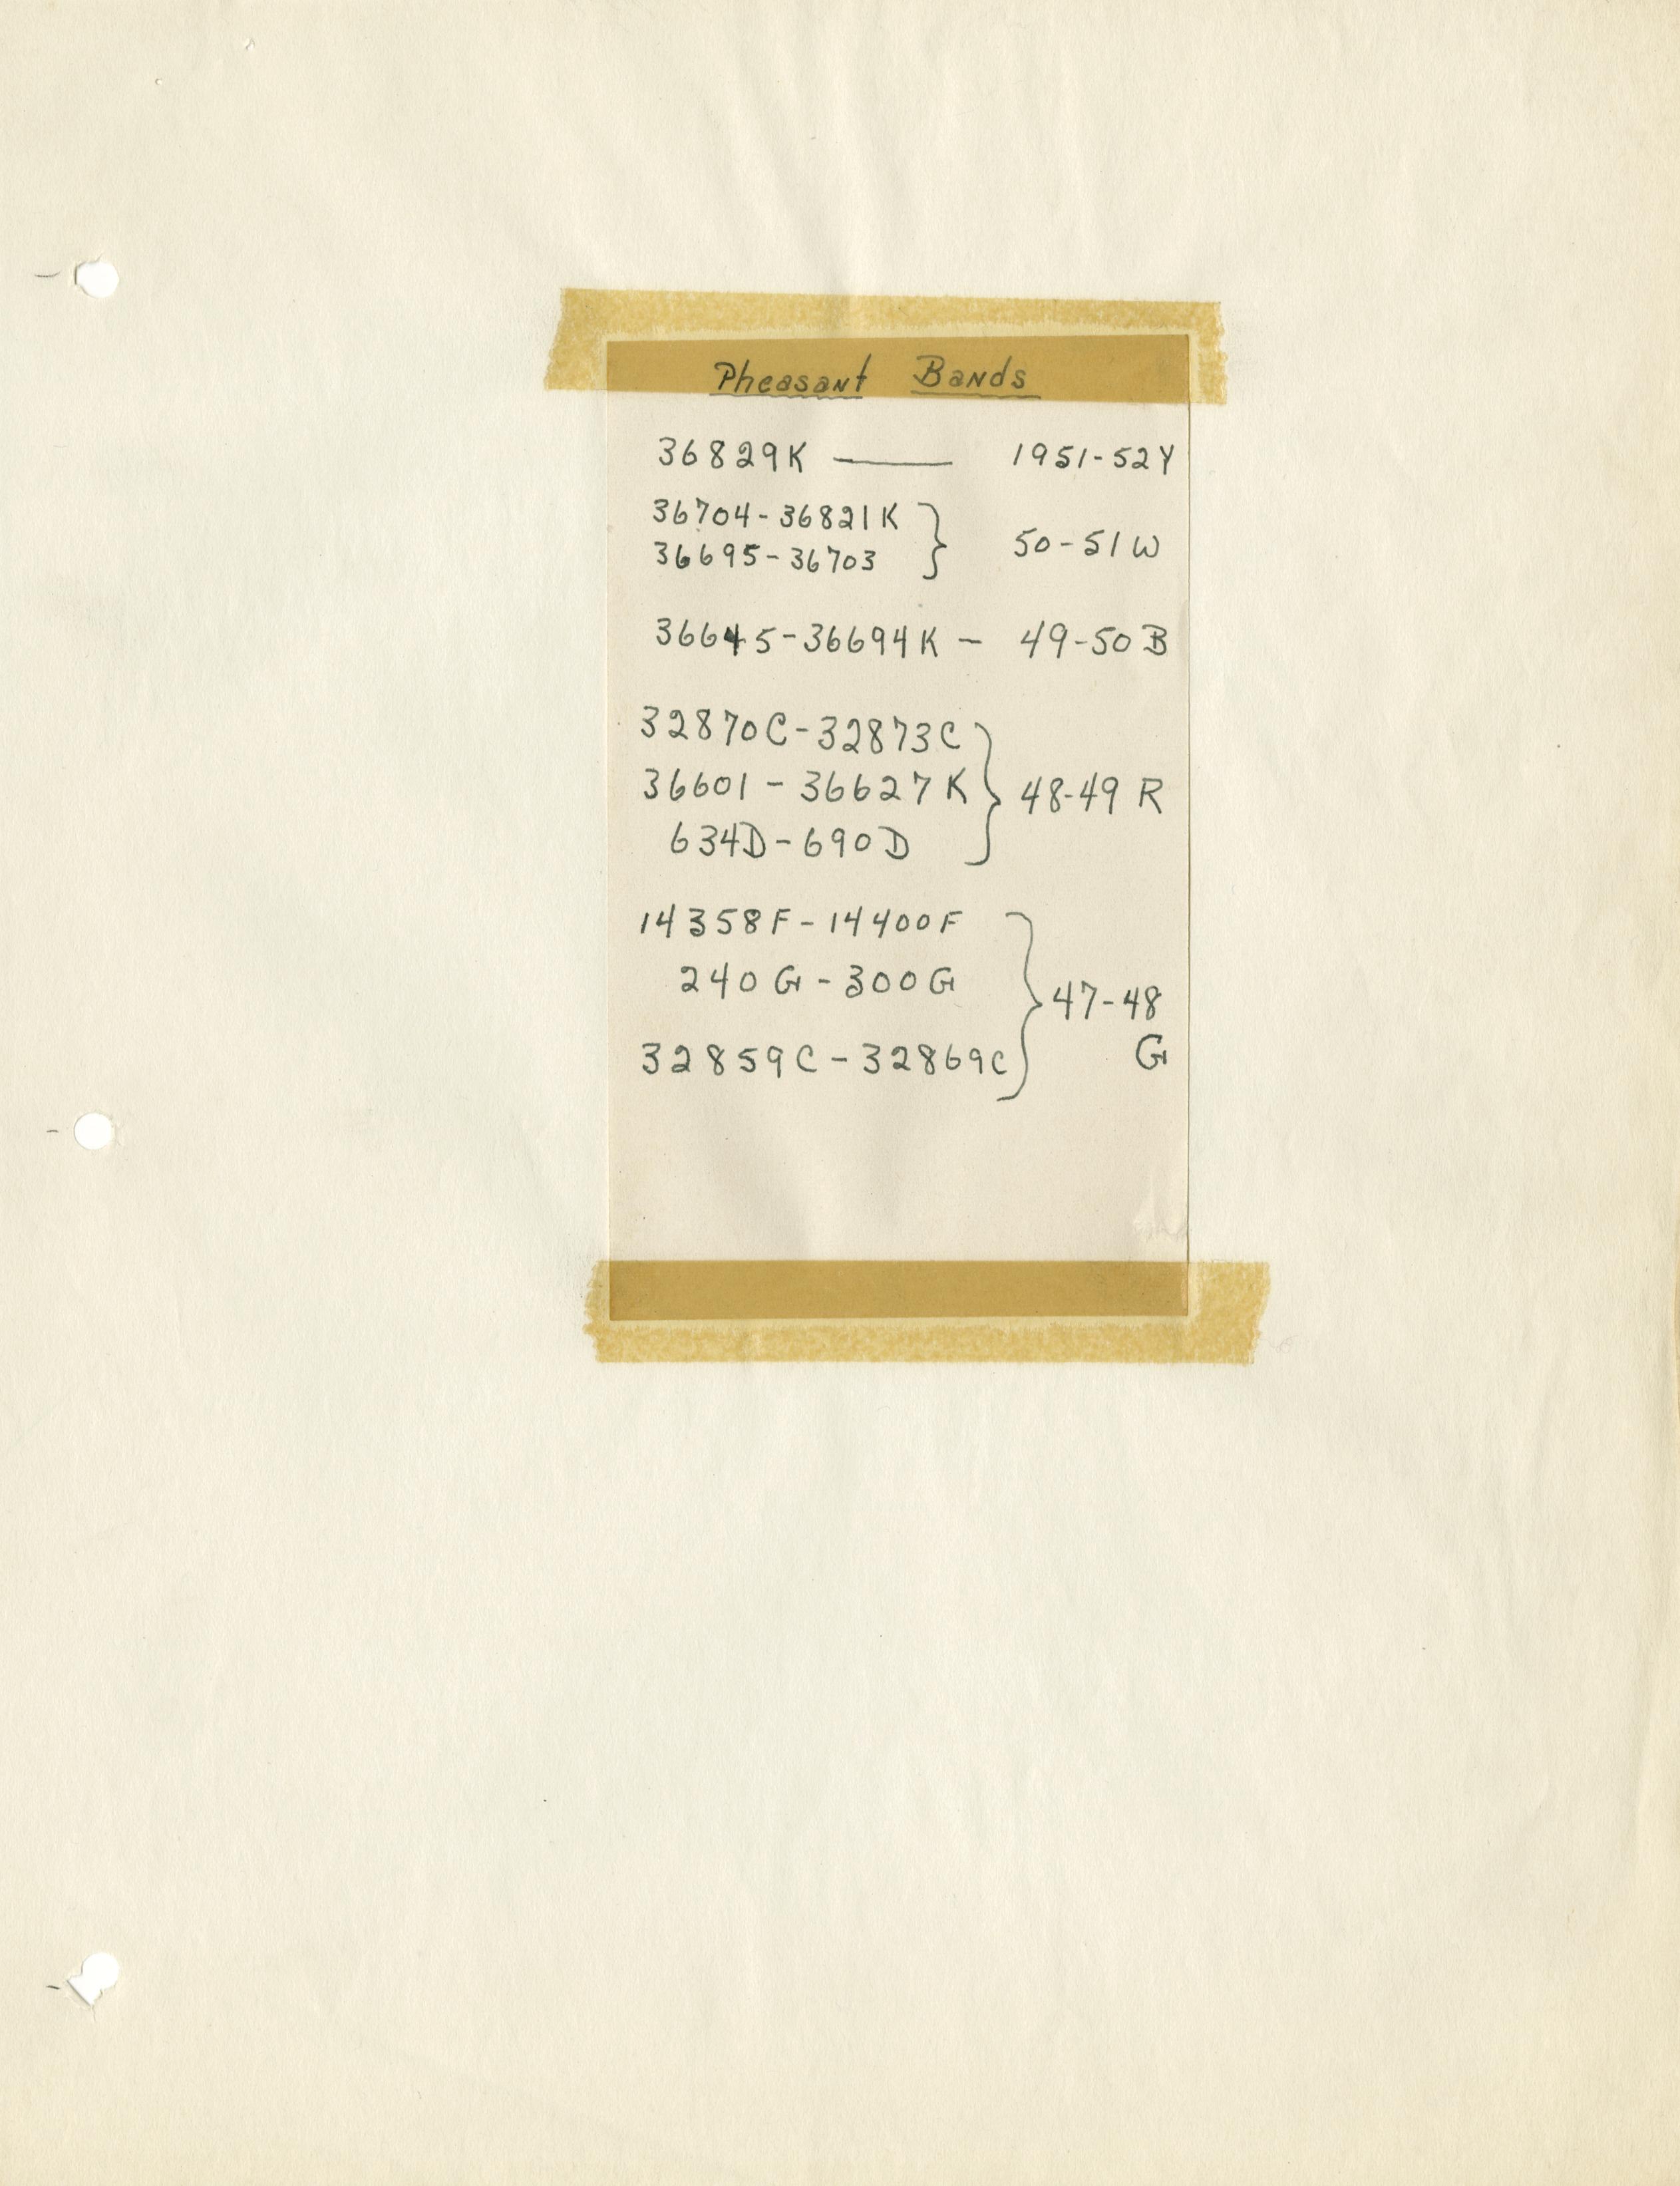 Pheasant Bands
36829K — 1951-52Y
36704-36821K
36695-36703 } 50-51W
36645-36694K - 49-50B
32870C-32873C
36601-36627K } 48-49 R
634D-690D
14358F-14400F
240G-300G } 47-48
32859C-32869C G